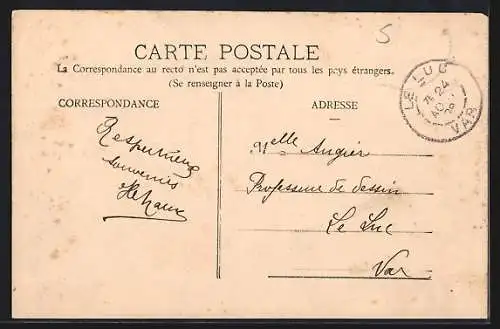 5
CARTE POSTALE
La Correspondance au recto n'est pas acceptée par tous les pays étrangers.
(Se renseigner à la Poste)
LE LUC
24
VAR
CORRESPONDANCE
Respectueux
souvenirs
ADRESSE
Melle Augier
Professeur de dessin
Le Luc
Var